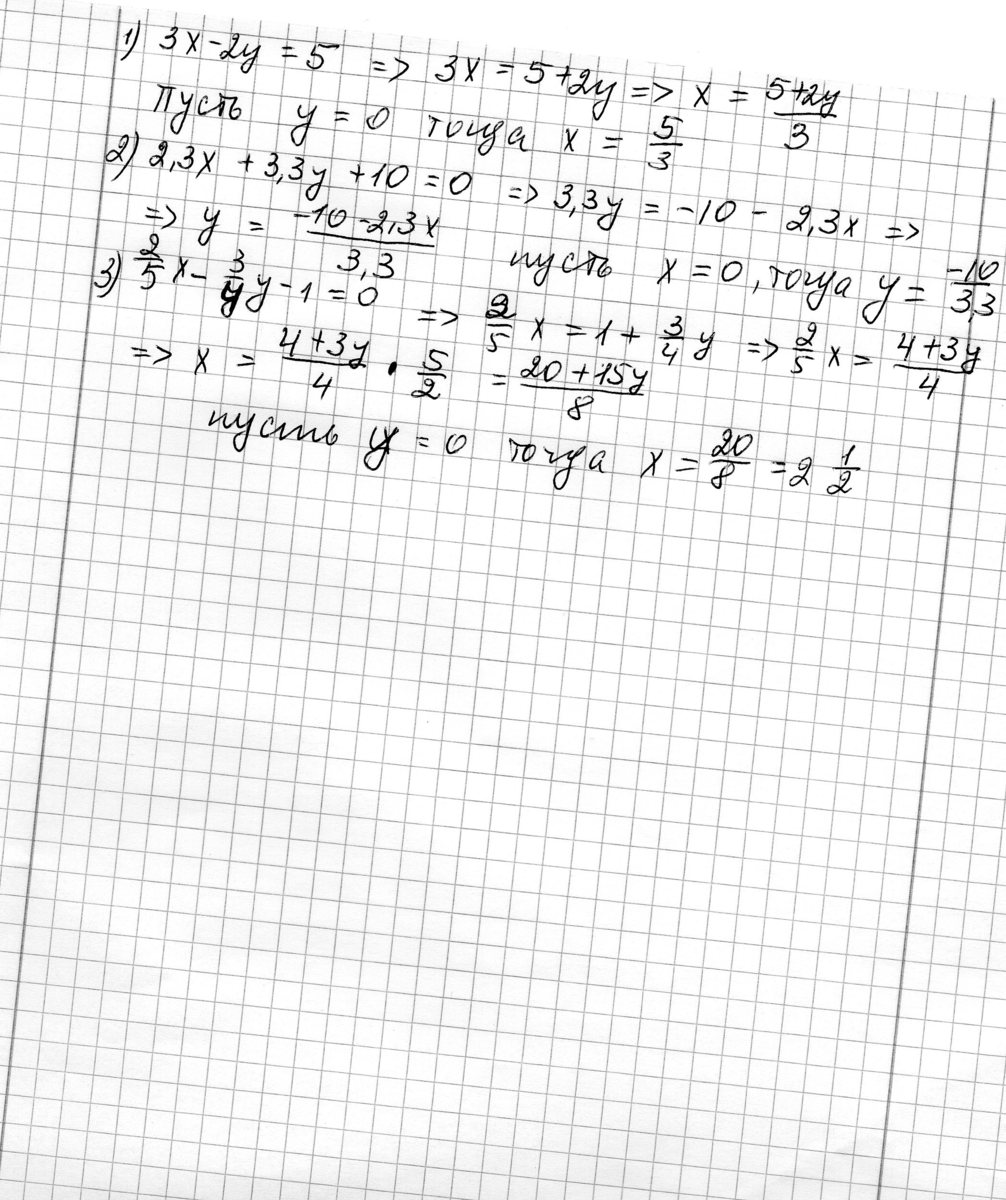 1) 3x - 2y = 5 => 3x = 5+2y => x = (5+2y)/3
Пусть y = 0 тогда x = 5/3
2) 2,3x + 3,3y + 10 = 0 => 3,3y = -10 - 2,3x =>
=> y = (-10 - 2,3x)/3,3 пусть x = 0, тогда y = -10/3,3
3) 2/5 x - 3/4 y - 1 = 0 => 2/5 x = 1 + 3/4 y => 2/5 x = (4+3y)/4
=> x = (4+3y)/4 • 5/2 = (20+15y)/8
пусть y = 0 тогда x = 20/8 = 2 1/2